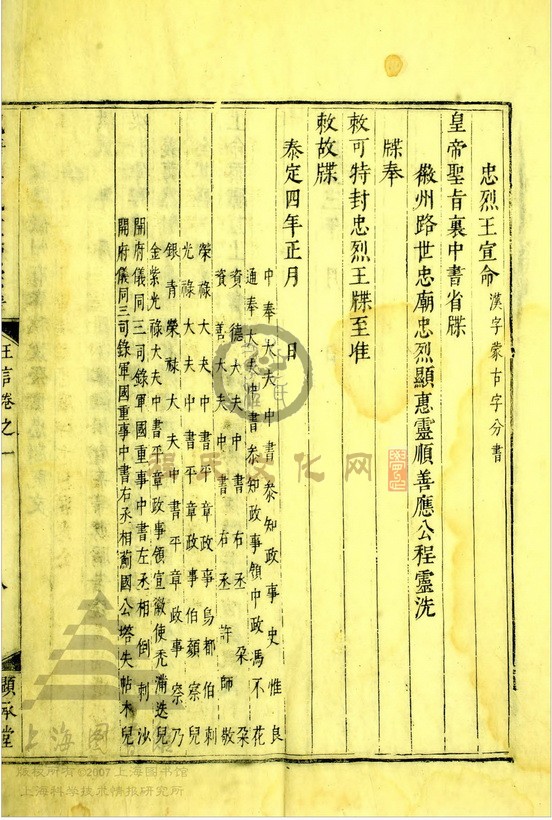 忠烈王宣命漢字蒙古字分書
皇帝聖旨裏中書省牒
徽州路世忠廟忠烈顯惠靈順善應公程靈洗
牒奉
敕可特封忠烈王牒至准
敕故牒
泰定四年正月 日
中奉大夫中書叅知政事史惟良
通奉大夫中書叅知政事領中政馮不花
資德大夫中書右丞朶朶
資善大夫中書右丞許師敬
榮祿大夫中書平章政事烏都伯剌
光祿大夫中書平章政事伯顏察兒
銀青榮祿大夫中書平章政事察乃
金紫光祿大夫中書平章政事領宣徽使禿滿迭兒
開府儀同三司錄軍國重事中書左丞相倒剌沙
開府儀同三司錄軍國重事中書右丞相薊國公塔失帖木兒
王言卷之一
八
顯承堂
文化网
上海图
版权所有©2007上海图书馆
上海科学技术情报研究所